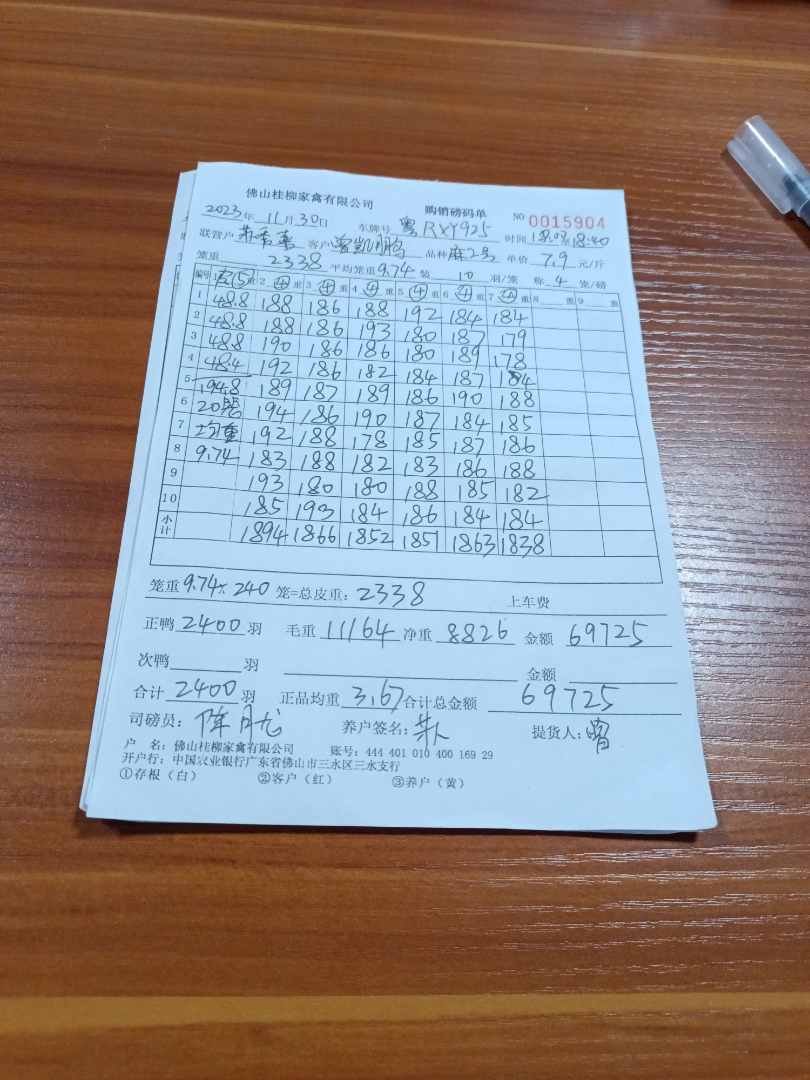 佛山桂柳家禽有限公司 购销磅码单 NO 0015904
2023年 11月 30日 车牌号 粤RXY925 时间 至18:40
联营户 客户 曾凯鹏 品种 麻2号 单价 7.9 元/斤
笼重 2338 平均笼重 9.74 装 10 羽/笼 称 4 笼/磅
编号 1 皮(5) 重 2 (4) 重 3 (4) 重 4 (4) 重 5 (4) 重 6 (4) 重 7 (4) 重 8 重 9 重
1 48.8 188 186 188 192 184 184
2 48.8 188 186 193 180 187 179
3 48.8 190 186 186 180 189 178
4 48.4 192 186 182 184 187 184
5 194.8 189 187 189 186 190 188
6 20笼 194 186 190 187 184 185
7 均重 192 188 178 185 187 186
8 9.74 183 188 182 183 186 188
9 193 180 180 188 185 182
10 185 193 184 186 184 184
小计 1894 1866 1852 1851 1863 1838
笼重 9.74 x 240 笼=总皮重: 2338 上车费
正鸭 2400 羽 毛重 11164 净重 8826 金额 69725
次鸭 羽 金额
合计 2400 羽 正品均重 3.67 合计总金额 69725
司磅员: 陈月龙 养户签名: 提货人: 曾
户 名: 佛山桂柳家禽有限公司 账号: 444 401 010 400 169 29
开户行: 中国农业银行广东省佛山市三水区三水支行
①存根(白) ②客户(红) ③养户(黄)